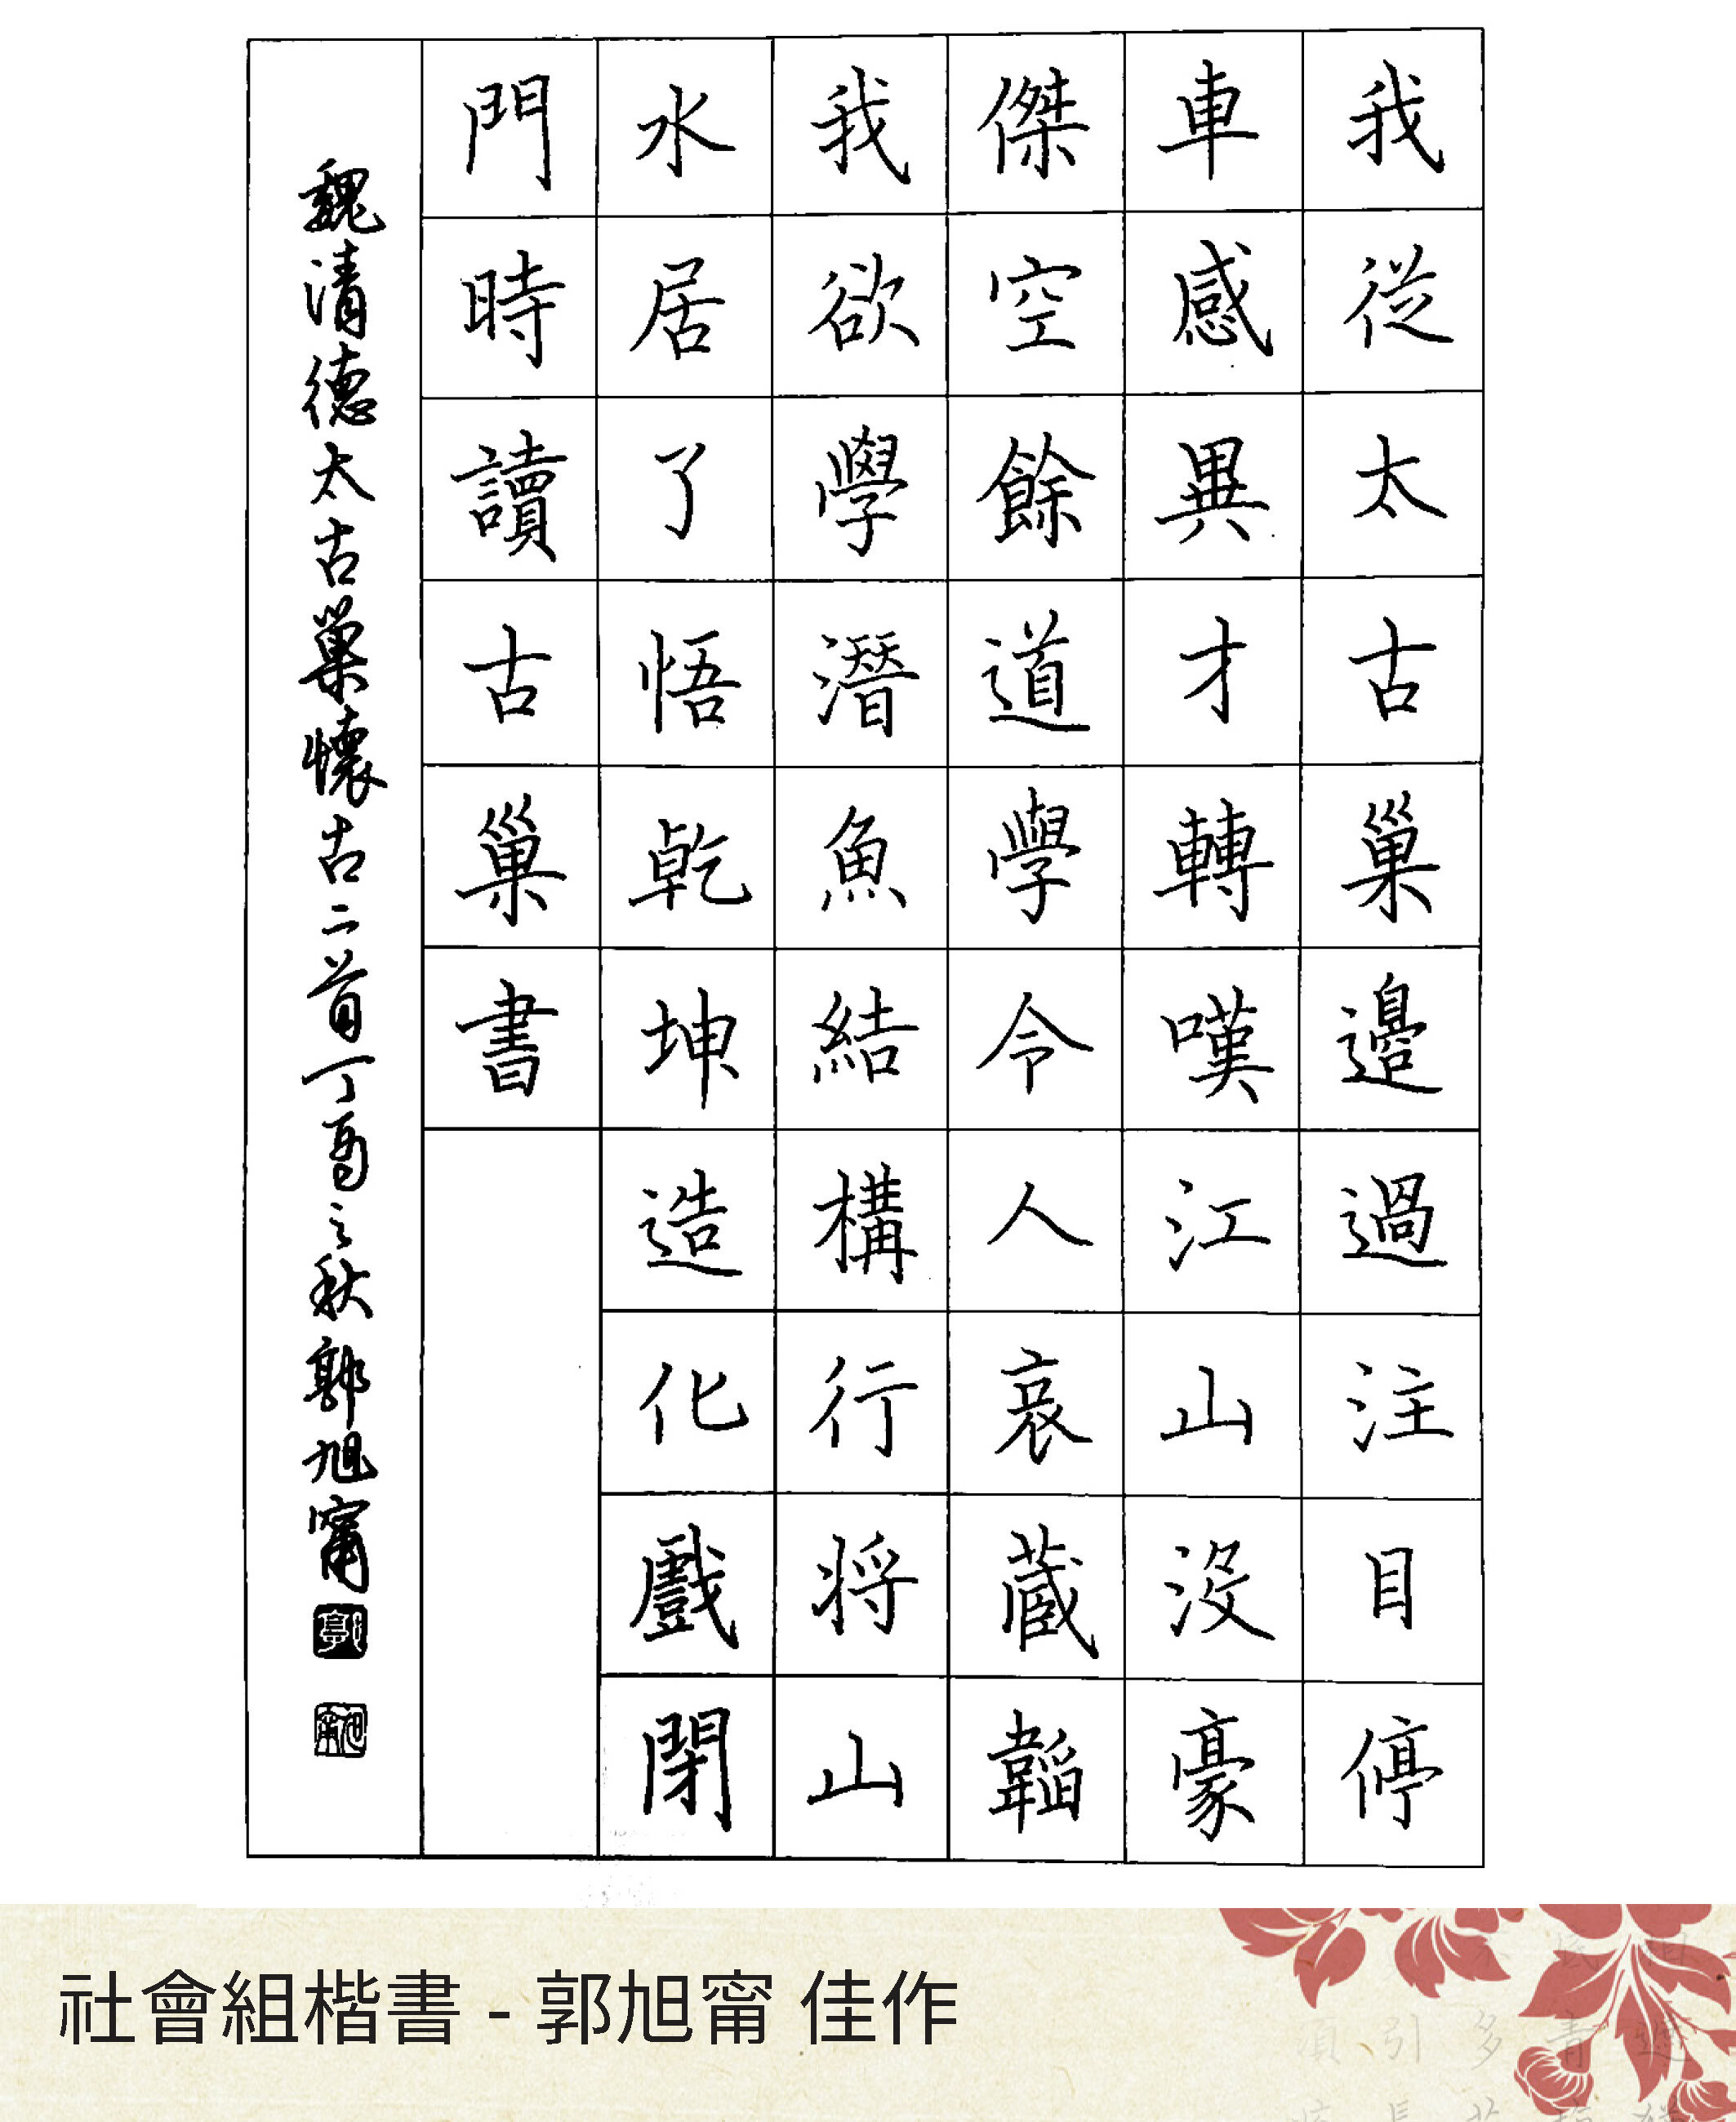 我從太古巢邊過注目停
車感異才轉嘆江山没豪
傑空餘道學令人哀藏韜
我欲學潛魚結構行將山
水居了悟乾坤造化戲閉
門時讀古巢書
魏清德太古巢懷古二首丁酉之秋郭旭甯
社會組楷書 - 郭旭甯 佳作